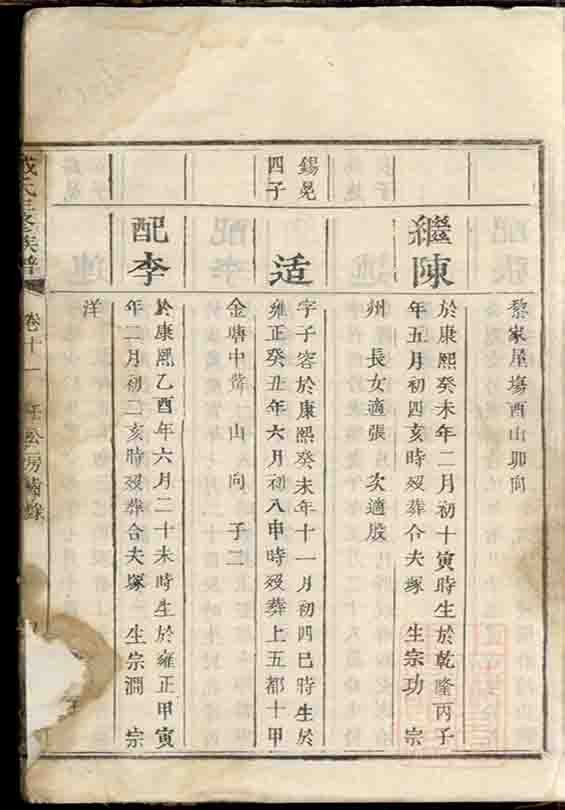 黎家屋塲酉山卯向
繼陳
於康熙癸未年二月初十寅時生於乾隆丙子
年五月初四亥時殁葬合夫塚 生宗功 宗
州 長女適張 次適殷
錫晃
四子
适
字子容於康熙癸未年十一月初四巳時生於
雍正癸丑年六月初八申時殁葬上五都十甲
金塘中 山 向 子二
配李
於康熙乙酉年六月二十未時生於雍正甲寅
年二月初二亥時殁葬合夫塚 生宗澗 宗
洋
氏 族譜
卷十一 公房 錄